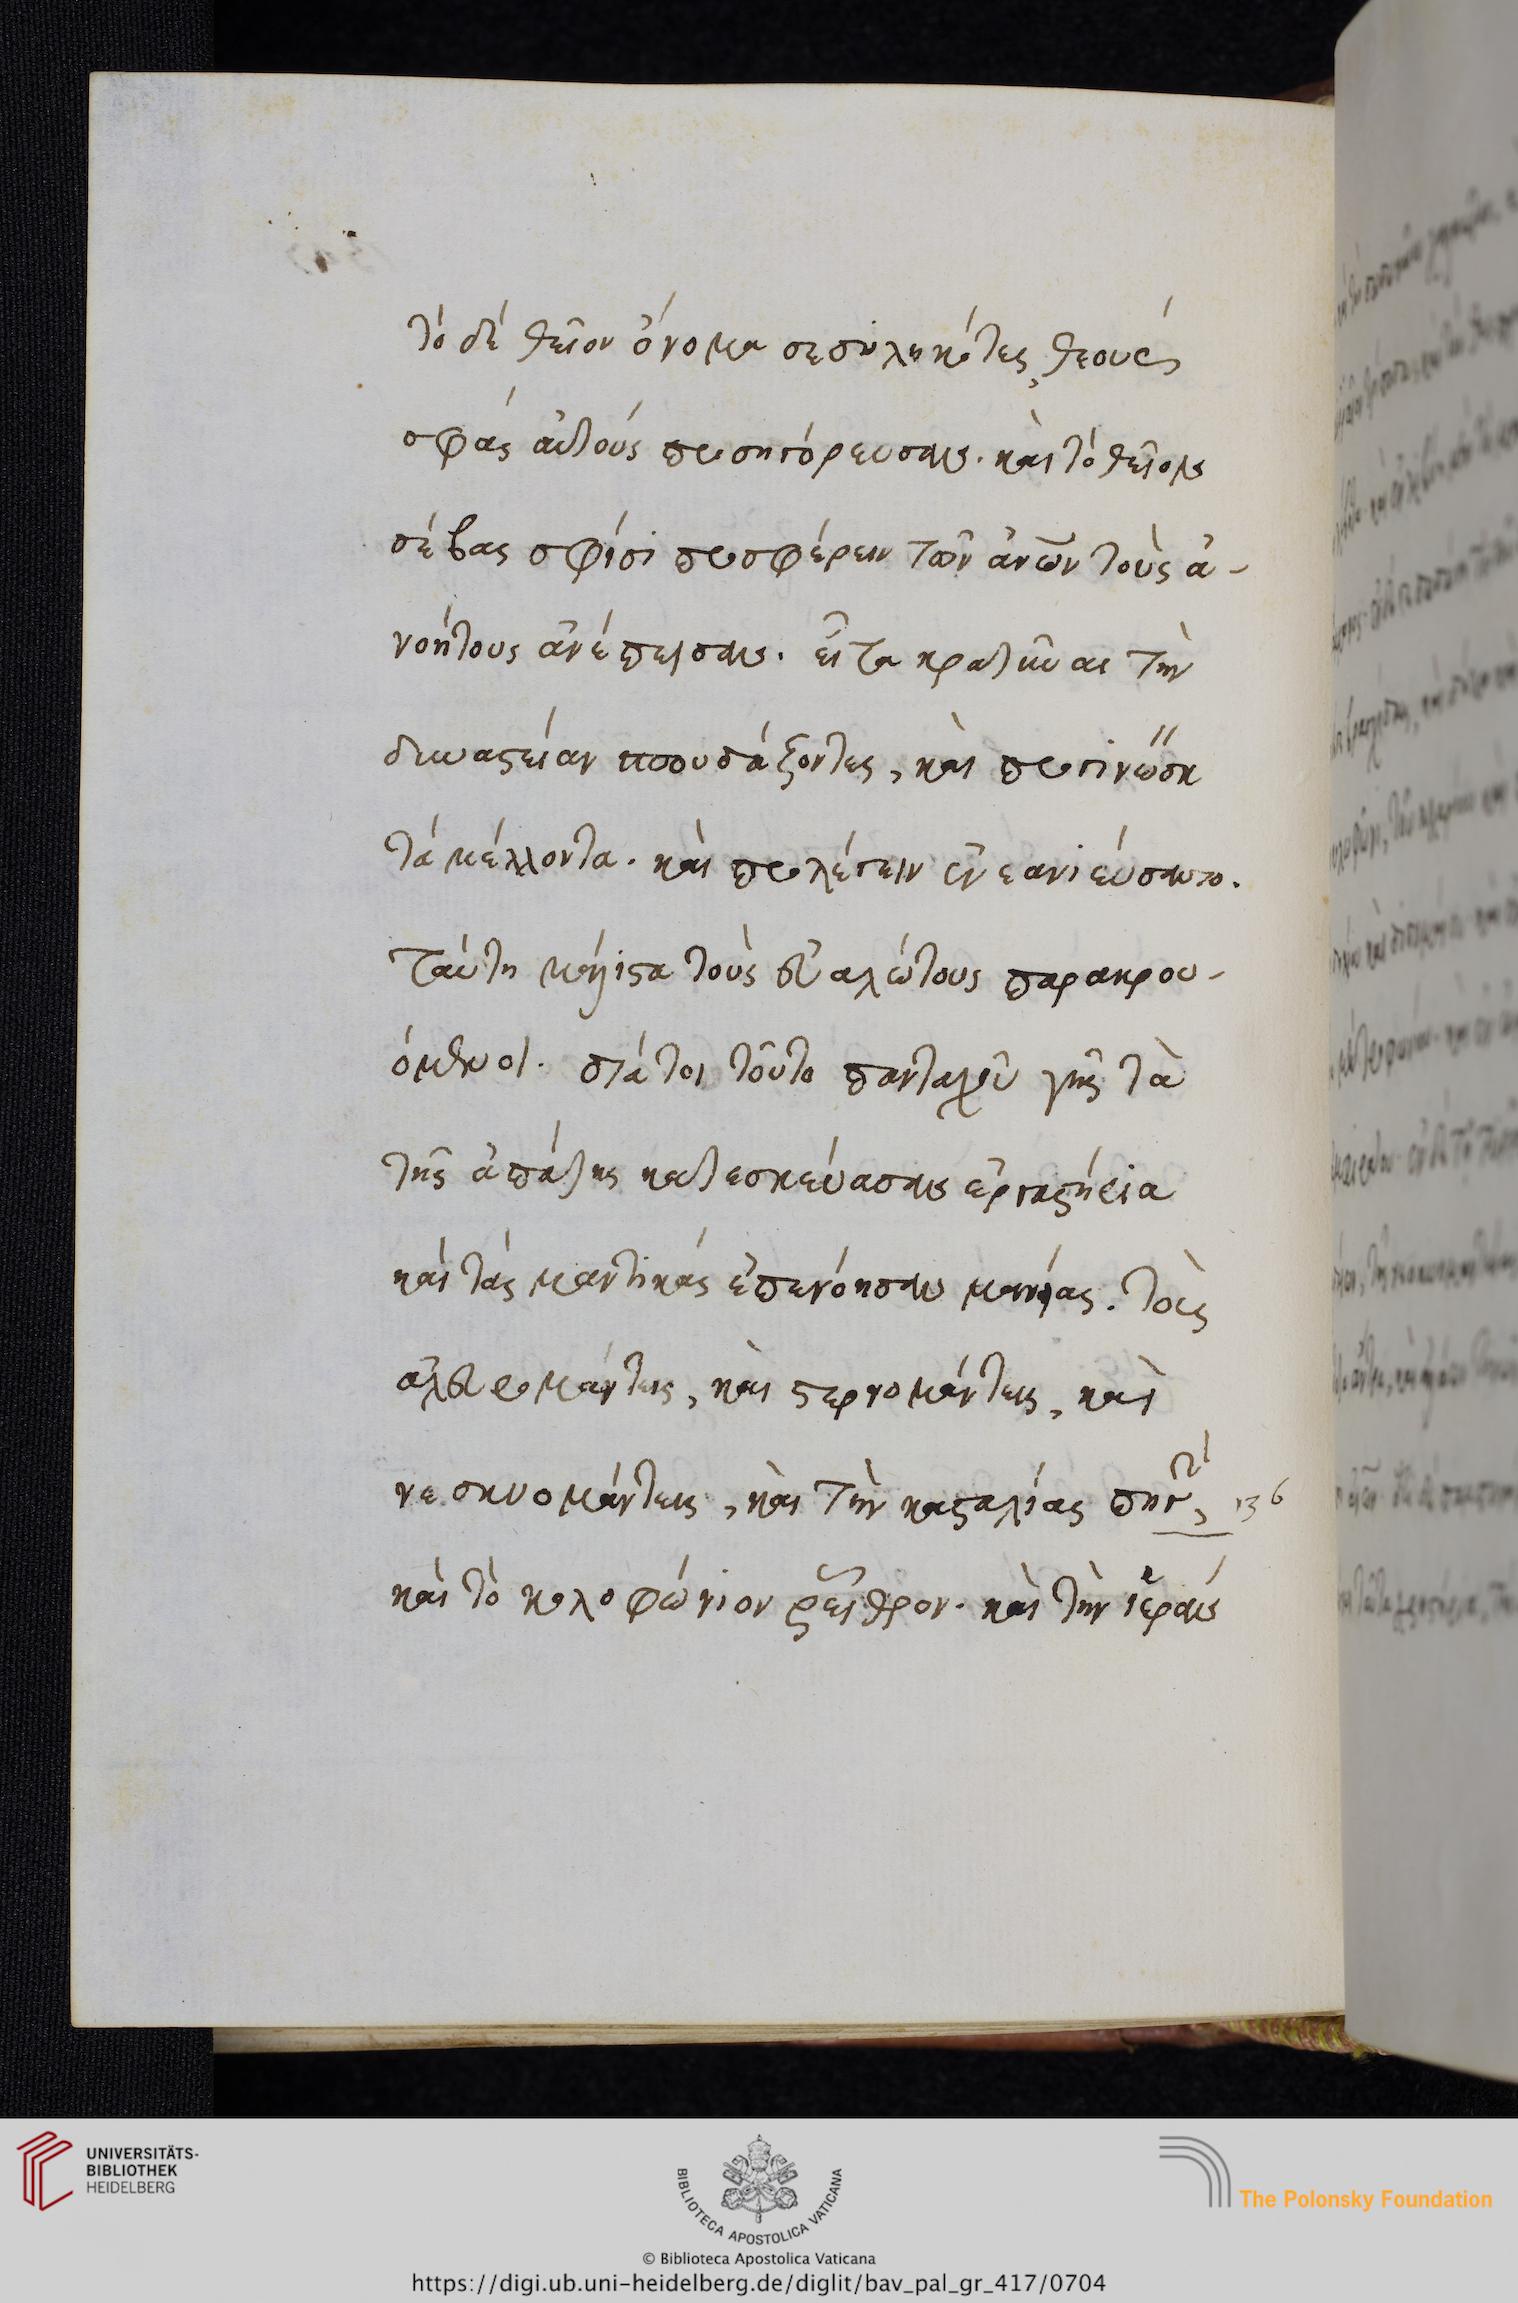 τὸ δὲ θεῖον ὄνομα σεσυληκότες, θεοὺς
σφᾶς αὐτοὺς προσηγόρευσαν. καὶ τὸ θεῖον
σέβας σφίσι προσφέρειν τῶν ἀνων τοὺς ἀ-
νοήτους ἀνέπεισαν. εἶτα κρατῦναι τὴν
δυναστείαν σπουδάζοντες, καὶ προγινώσκ
τὰ μέλλοντα. καὶ προλέγειν ἐνεανιεύσαντο.
ταύτη μάλιστα τοὺς εὐαλώτους παρακρου-
όμενοι. διά τοι τοῦτο πανταχοῦ γῆς τὰ
τῆς ἀπάτης κατεσκεύασαν ἐργαστήρια
καὶ τὰς μαντικὰς ἐπενόησαν μανίας. τοὺς
ἀλευρομάντεις, καὶ στερνομάντεις, καὶ
νεκυομάντεις, καὶ τὴν κασταλίας πηγ, 136
καὶ τὸ κολοφώνιον ῥεῖθρον. καὶ τὴν ἱερὰν
UNIVERSITÄTS-
BIBLIOTHEK
HEIDELBERG
BIBLIOTECA APOSTOLICA VATICANA
The Polonsky Foundation
© Biblioteca Apostolica Vaticana
https://digi.ub.uni-heidelberg.de/diglit/bav_pal_gr_417/0704